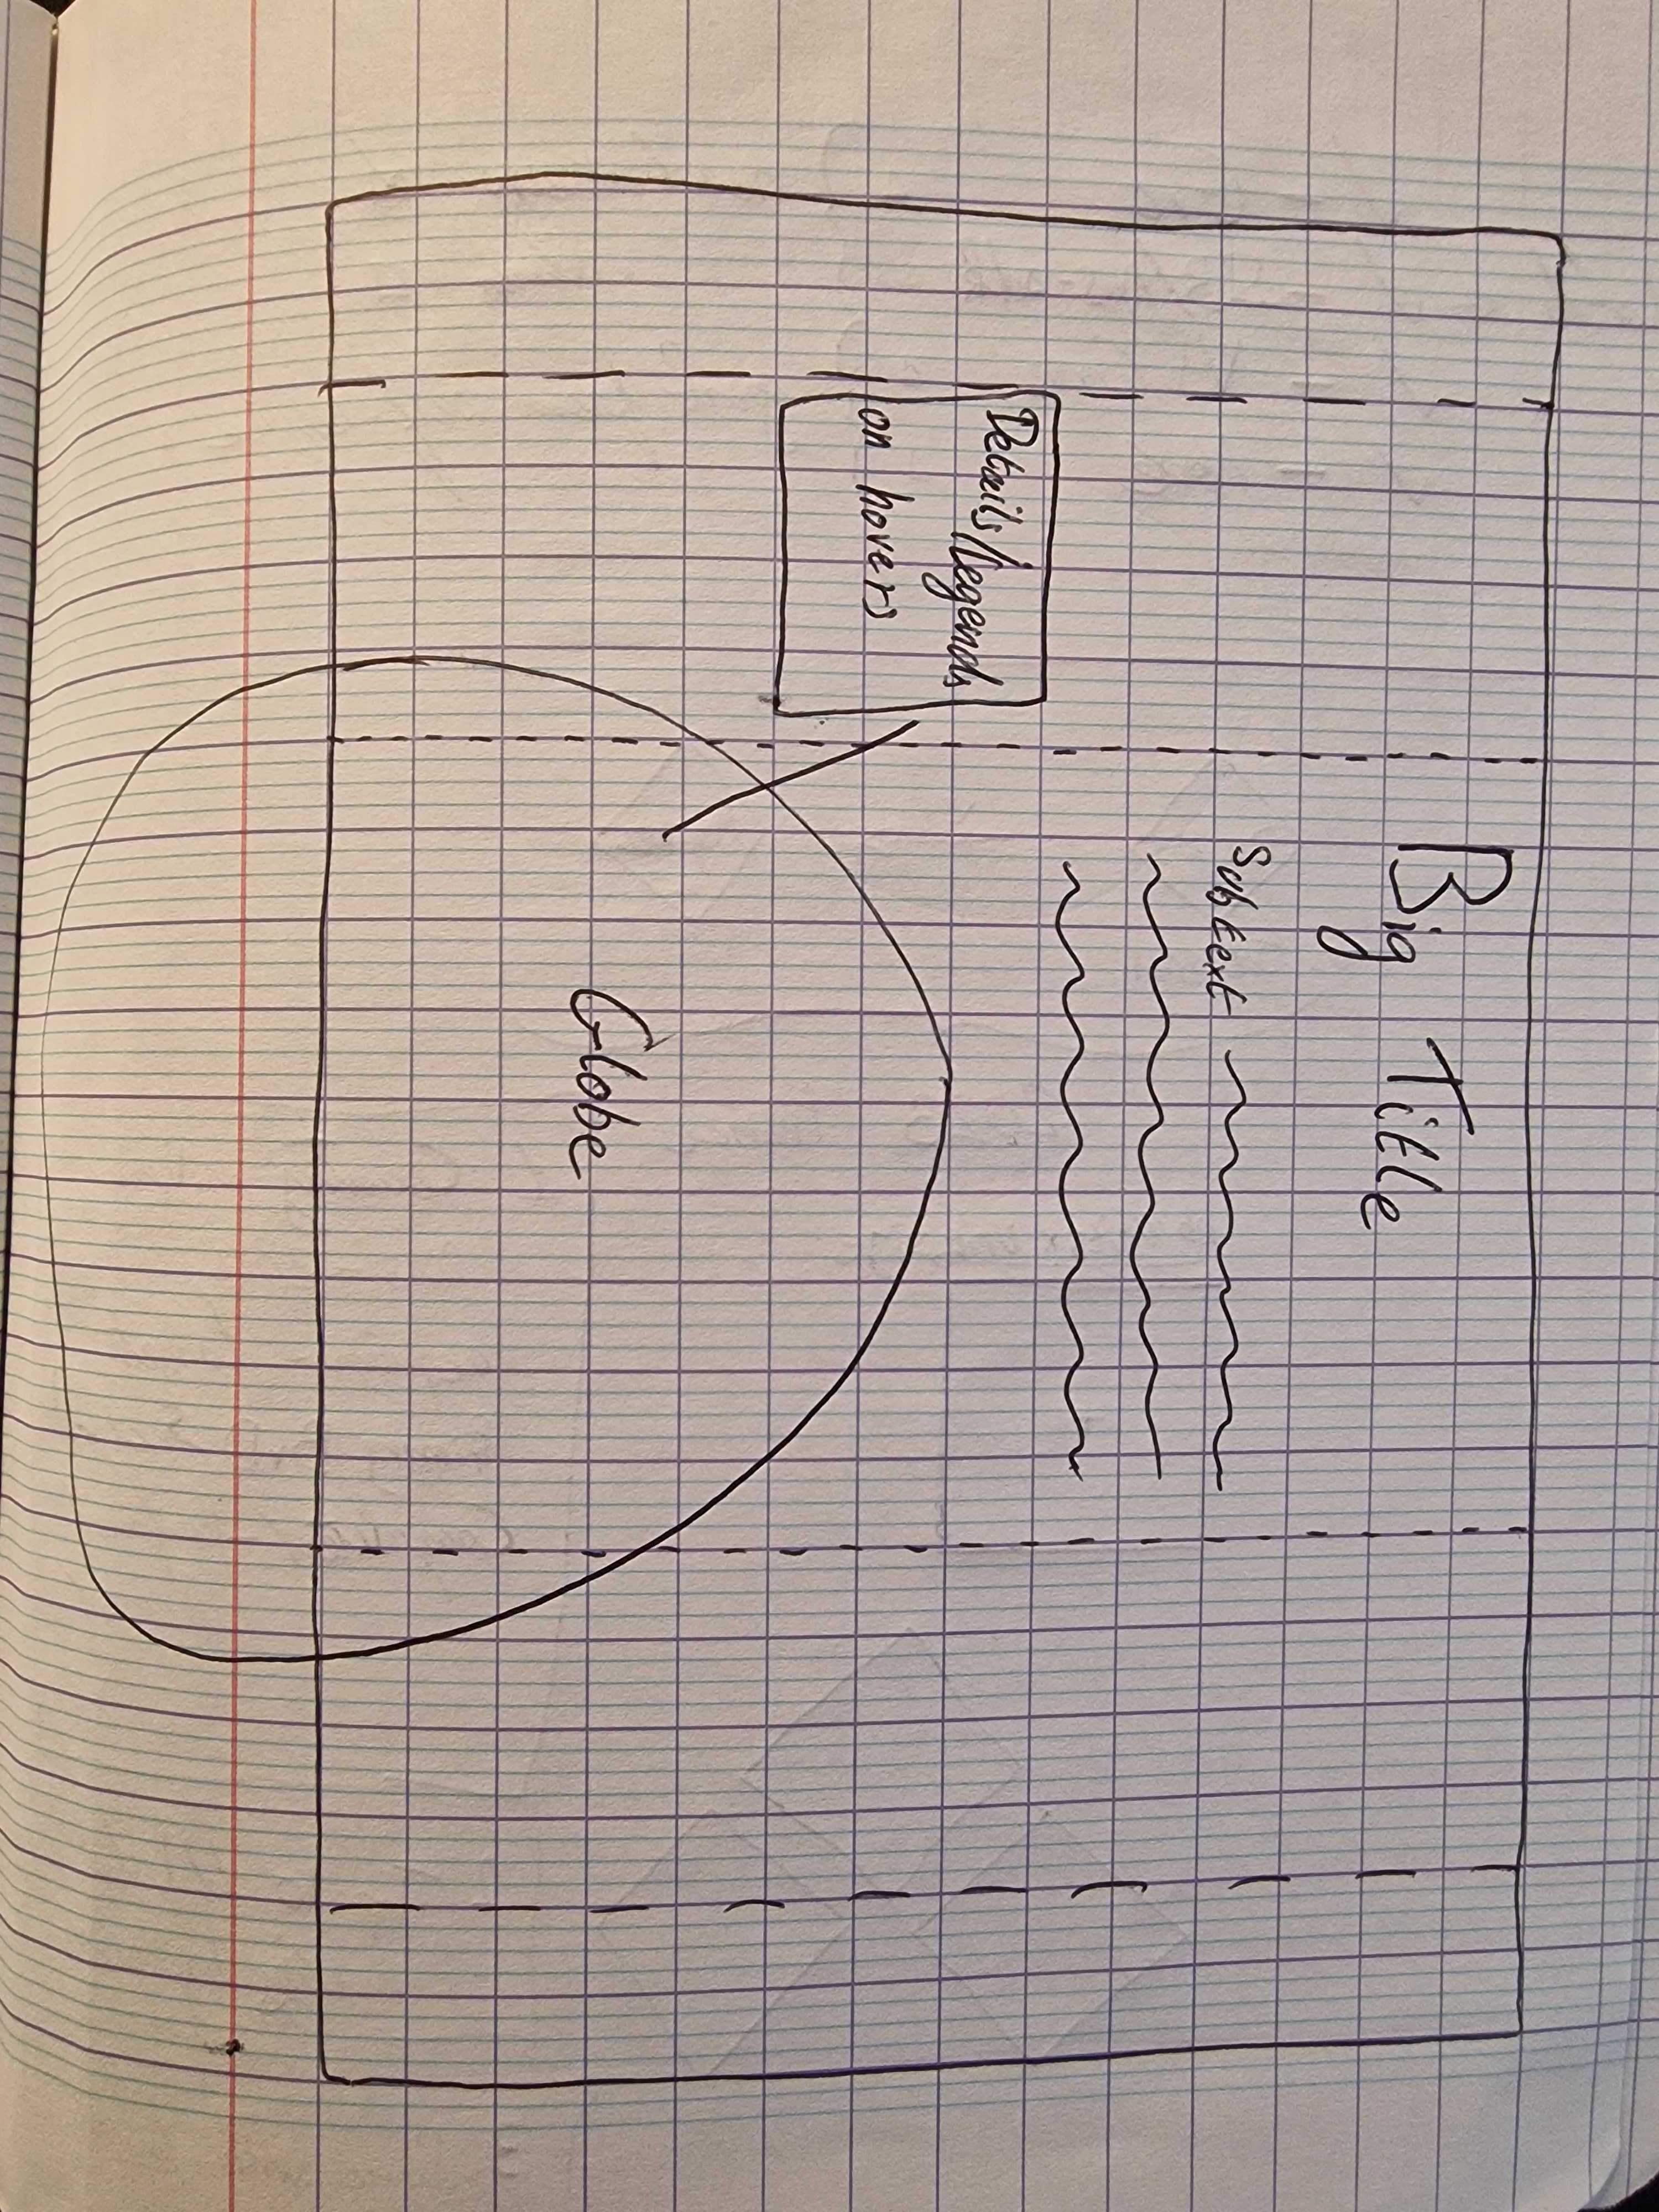 Big Title
Subtext
Details/Legends
on hovers
Globe